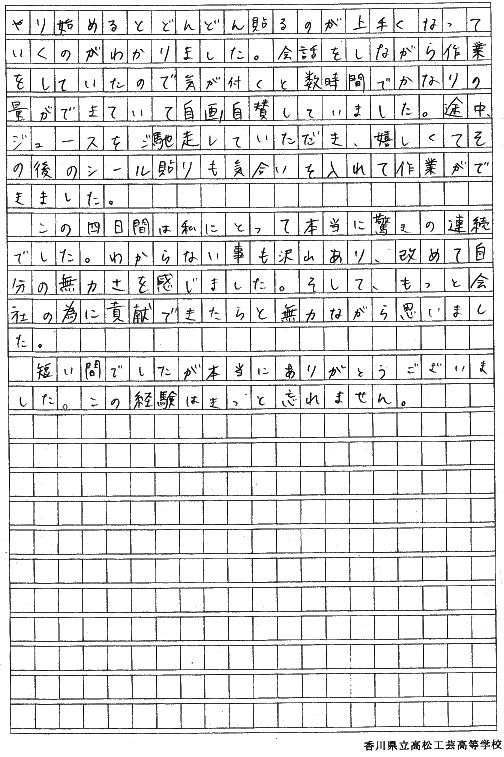 やり始めるとどんどん貼るのが上手くなって
いくのがわかりました。会話をしながら作業
をしていたので気が付くと数時間でかなりの
量ができていて自画自賛していました。途中、
ジュースをご馳走していただき、嬉しくてそ
の後のシール貼りも気合いを入れて作業がで
きました。
この四日間は私にとって本当に驚きの連続
でした。わからない事も沢山あり、改めて自
分の無力さを感じました。そして、もっと会
社の為に貢献できたらと無力ながら思いまし
た。
短い間でしたが本当にありがとうございま
した。この経験はきっと忘れません。
香川県立高松工芸高等学校